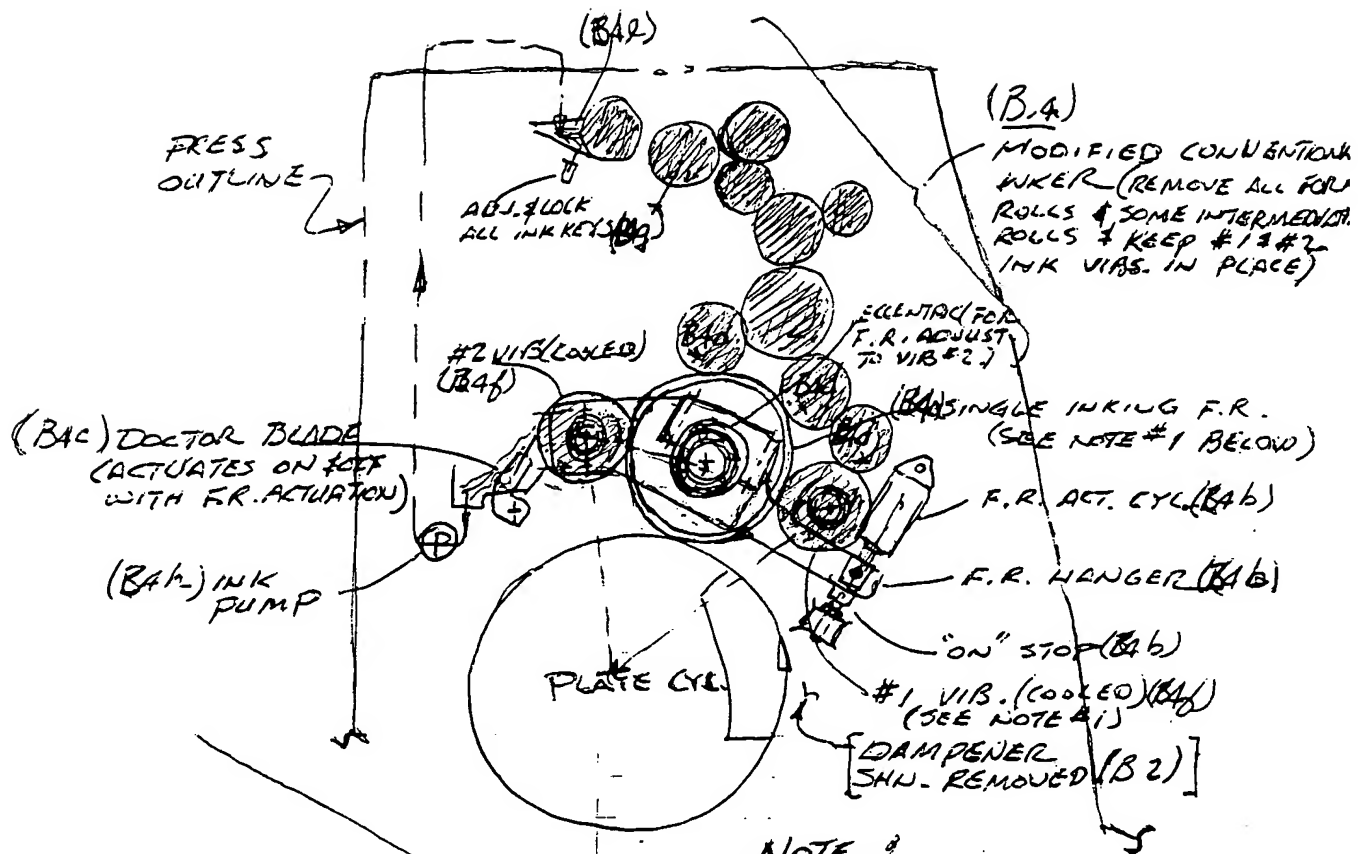 (B4l)
PRESS
OUTLINE
ADJ. & LOCK
ALL INK KEYS (B4g)
(B.4)
MODIFIED CONVENTIONA
INKER (REMOVE ALL FORM
ROLLS & SOME INTERMEDIATE
ROLLS & KEEP #1 & #2
INK VIBS. IN PLACE)
B4d
ECCENTRIC (FOR
F.R. ADJUST
TO VIB #2)
#2 VIB (COOLED)
(B4f)
SINGLE INKING F.R.
(SEE NOTE #1 BELOW)
(B4c) DOCTOR BLADE
(ACTUATES ON & OFF
WITH F.R. ACTUATION)
F.R. ACT. CYL. (B4b)
P
(B4h) INK
PUMP
F.R. HANGER (B4b)
"ON" STOP (B4b)
PLATE CYL.
#1 VIB. (COOLED) (B4f)
(SEE NOTE #1)
[DAMPENER
SHN. REMOVED (B2)]
NOTE :